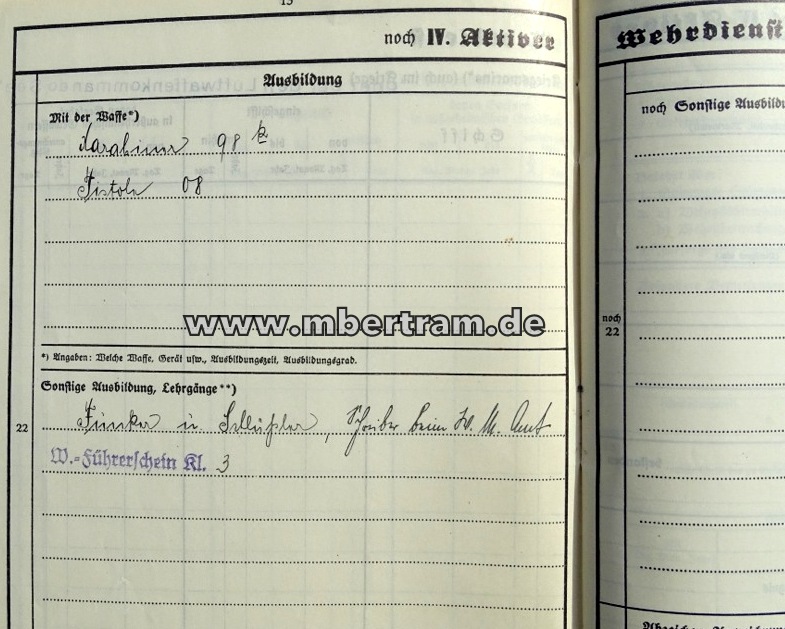 13
noch IV. Aktiver
Wehrdienst
Ausbildung
Mit der Waffe*)
Karabiner 98 k
Pistole 08
www.mbertram.de
*) Angaben: Welche Waffe, Gerät usw., Ausbildungszeit, Ausbildungsgrad.
Sonstige Ausbildung, Lehrgänge**)
22
Funker u Schlüßler, Schreiber beim W. M. Amt
W.-Führerschein Kl. 3
noch Sonstige Ausbildu
noch
22